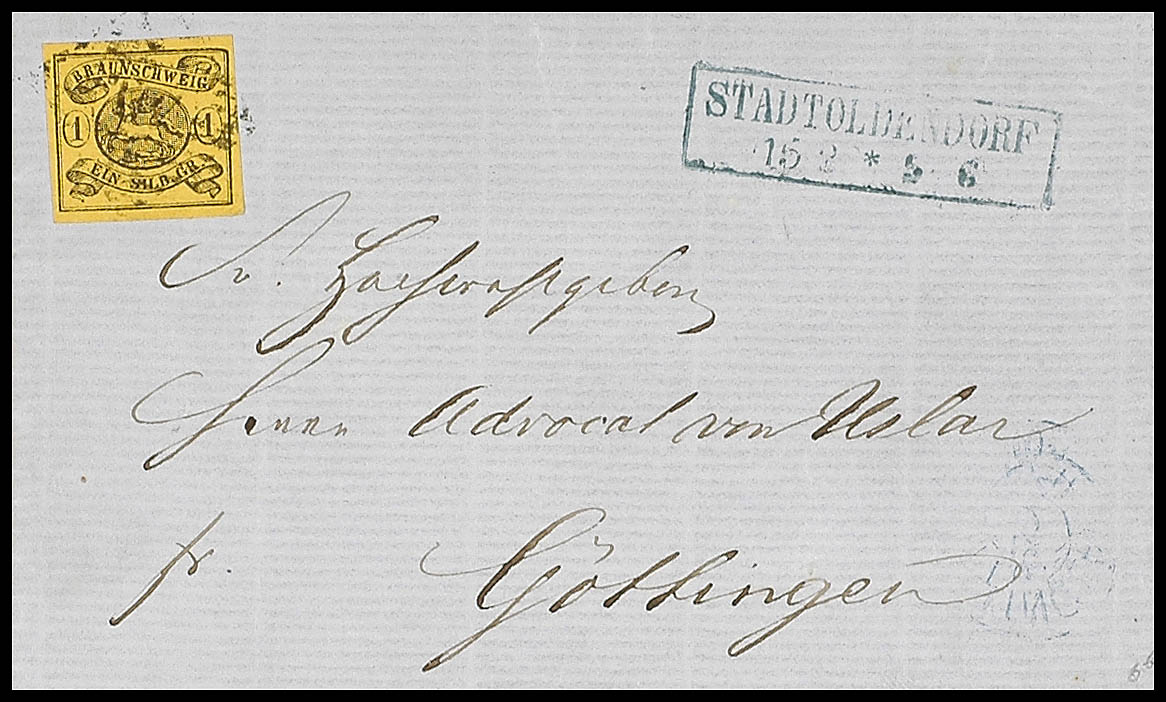 BRAUNSCHWEIG
1 1
EIN SILB.GR.
STADTOLDENDORF
15 2 * 5 6
Sr. Hochwohlgeboren
Herrn Advocat von Uslar
fr.
Göttingen